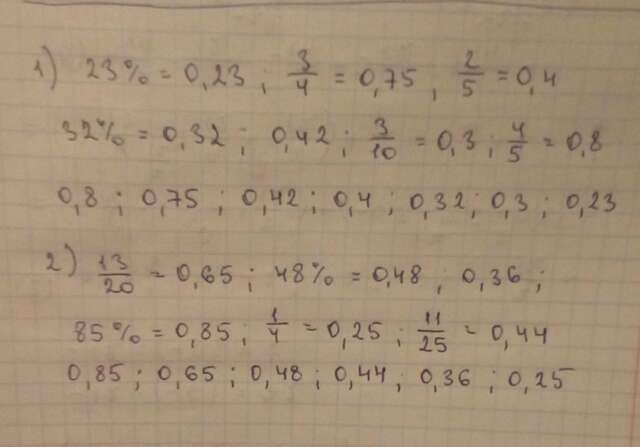 1) 23% = 0,23 ; 3/4 = 0,75 , 2/5 = 0,4
32% = 0,32 ; 0,42 ; 3/10 = 0,3 ; 4/5 = 0,8
0,8 ; 0,75 ; 0,42 ; 0,4 ; 0,32 ; 0,3 ; 0,23
2) 13/20 = 0,65 ; 48% = 0,48 ; 0,36 ;
85% = 0,85 ; 1/4 = 0,25 ; 11/25 = 0,44
0,85 ; 0,65 ; 0,48 ; 0,44 ; 0,36 ; 0,25